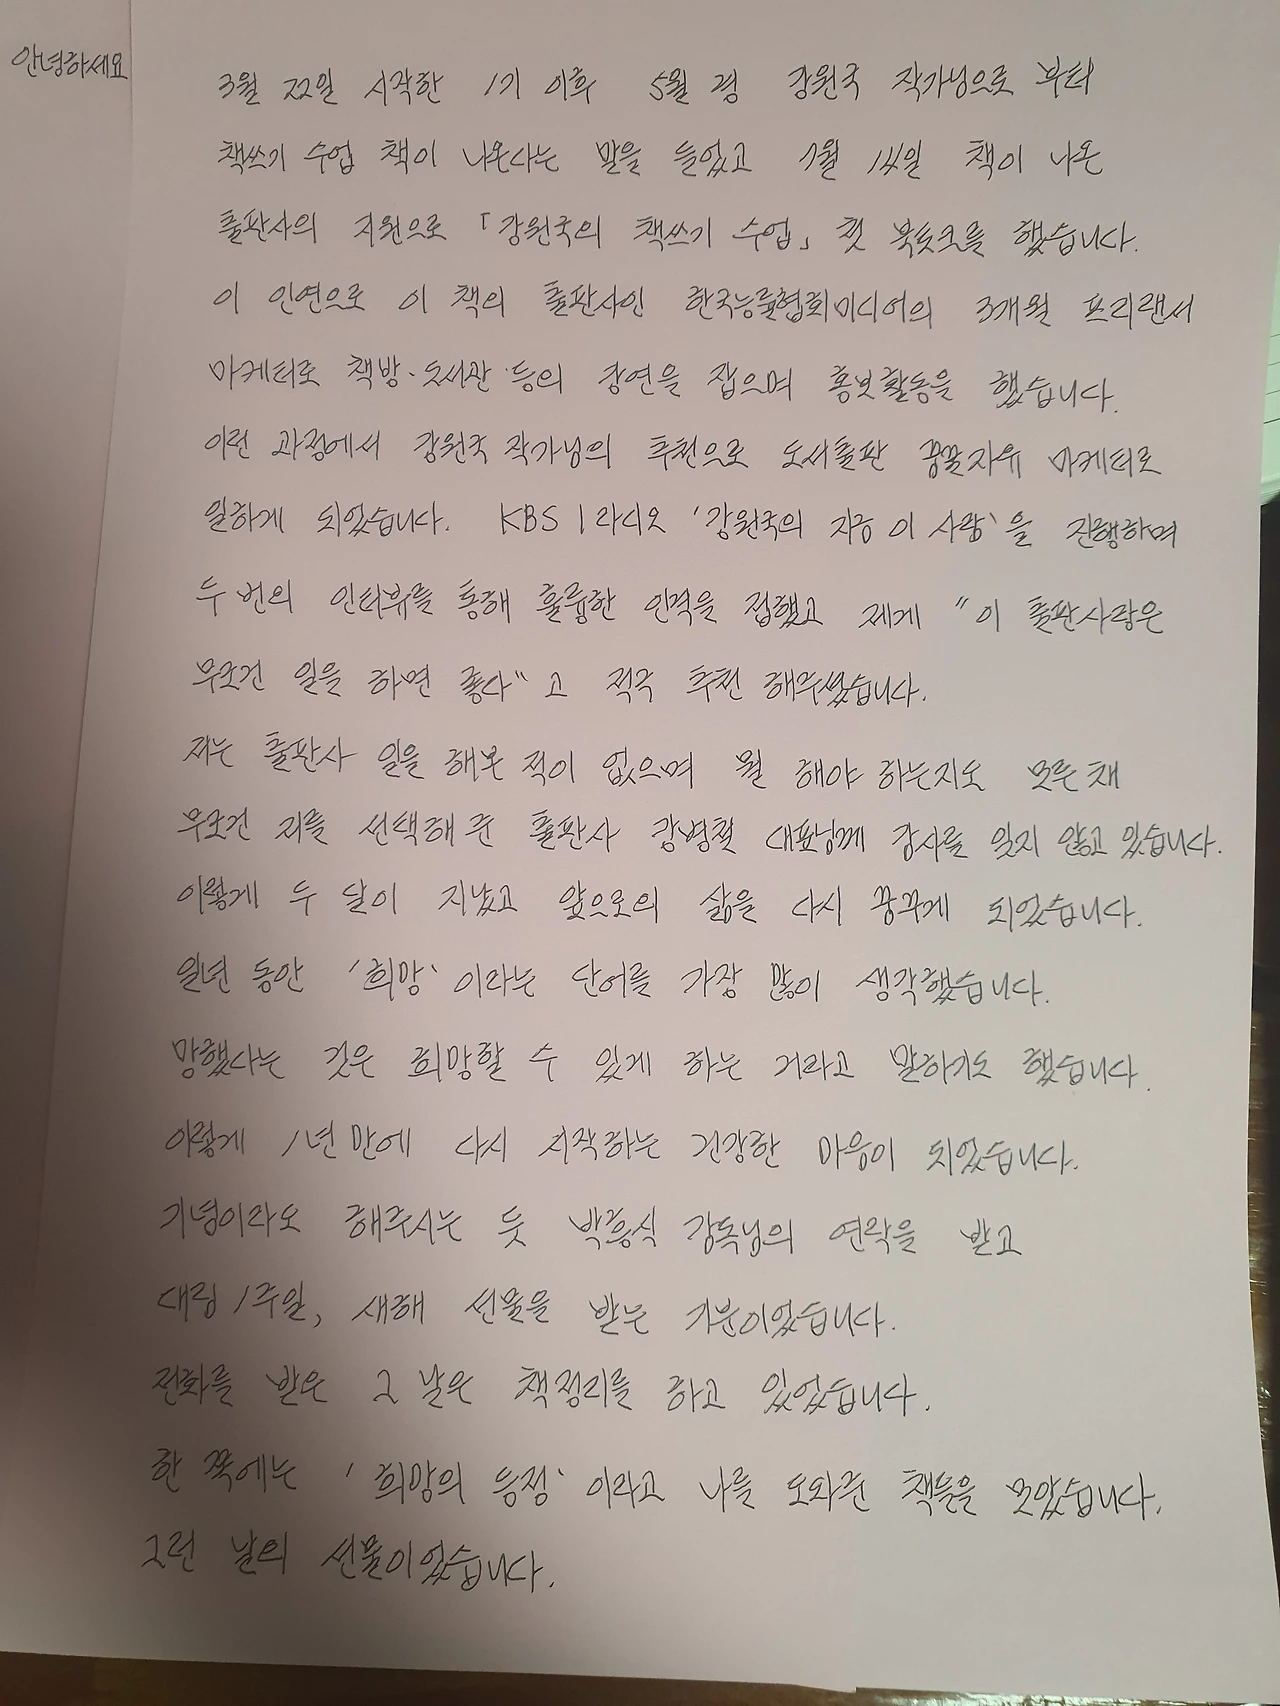 안녕하세요
3월 22일 시작한 1기 이후 5월 경 강원국 작가님으로 부터
책쓰기 수업 책이 나온다는 말을 들었고 7월 14일 책이 나온
출판사의 지원으로 「강원국의 책쓰기 수업」 첫 북토크를 했습니다.
이 인연으로 이 책의 출판사인 한국능률협회미디어의 3개월 프리랜서
마케터로 책방·도서관 등의 강연을 잡으며 홍보활동을 했습니다.
이런 과정에서 강원국 작가님의 추천으로 도서출판 꿈꿀자유 마케터로
일하게 되었습니다. KBS 1라디오 '강원국의 지금 이 사람'을 진행하며
두 번의 인터뷰를 통해 훌륭한 인격을 접했고 제게 "이 출판사랑은
무조건 일을 하면 좋다"고 적극 추천 해주셨습니다.
저는 출판사 일을 해본 적이 없으며 뭘 해야 하는지도 모른 채
무조건 저를 선택해 준 출판사 강병철 대표님께 감사를 잊지 않고 있습니다.
이렇게 두 달이 지났고 앞으로의 삶을 다시 꿈꾸게 되었습니다.
일년 동안 '희망'이라는 단어를 가장 많이 생각했습니다.
망했다는 것은 희망할 수 있게 하는 거라고 말하기도 했습니다.
이렇게 1년 만에 다시 시작하는 건강한 마음이 되었습니다.
기념이라도 해주시는 듯 박흥식 감독님의 연락을 받고
대림 1주일, 새해 선물을 받는 기분이었습니다.
전화를 받은 그 날은 책정리를 하고 있었습니다.
한 쪽에는 '희망의 등정'이라고 나를 도와준 책들을 모았습니다.
그런 날의 선물이었습니다.